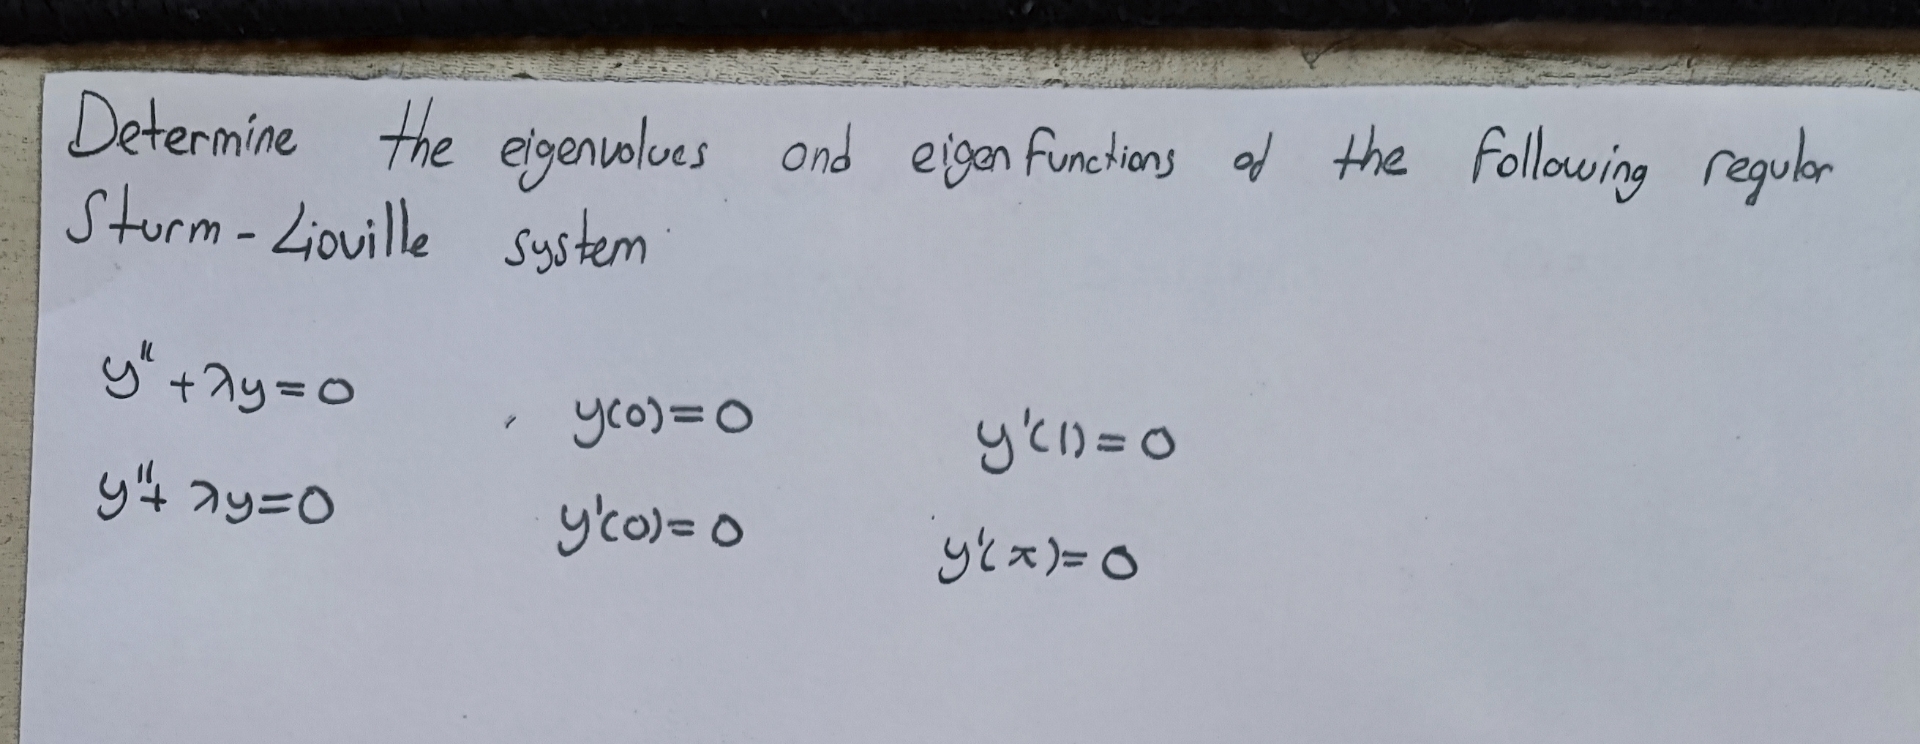 Determine the eigenvalues and eigen functions of the following regular
Sturm - Lioville system
y'' + λy = 0 , y(0) = 0 y'(1) = 0
y'' + λy = 0 y'(0) = 0 y'(π) = 0